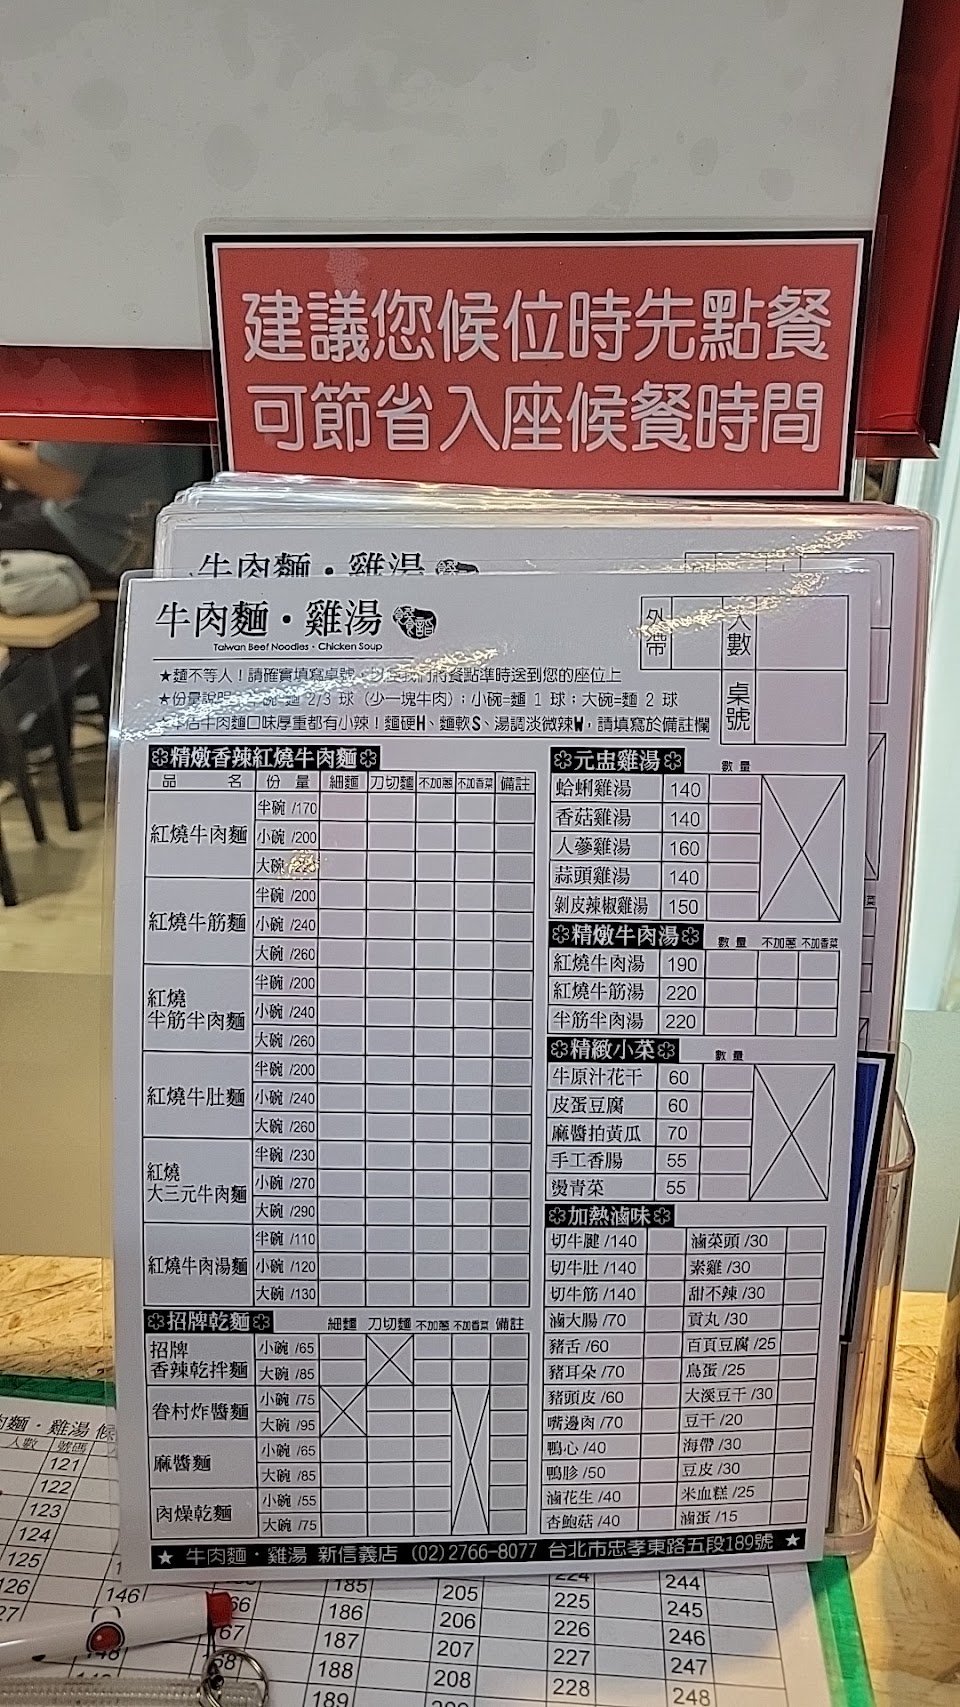 建議您候位時先點餐
可節省入座候餐時間
牛肉麵・雞湯
牛肉麵・雞湯
Taiwan Beef Noodles・Chicken Soup
外帶
人數
桌號
★麵不等人！請確實填寫桌號，以
將餐點準時送到您的座位上
★份量說明
2/3 球（少一塊牛肉）；小碗=麵 1 球；大碗=麵 2 球
店牛肉麵口味厚重都有小辣！麵硬H、麵軟S、湯調淡微辣W，請填寫於備註欄
精燉香辣紅燒牛肉麵
品名 份量 細麵 刀切麵 不加蔥 不加香菜 備註
紅燒牛肉麵
半碗 /170
小碗 /200
大碗
紅燒牛筋麵
半碗 /200
小碗 /240
大碗 /260
紅燒
半筋半肉麵
半碗 /200
小碗 /240
大碗 /260
紅燒牛肚麵
半碗 /200
小碗 /240
大碗 /260
紅燒
大三元牛肉麵
半碗 /230
小碗 /270
大碗 /290
紅燒牛肉湯麵
半碗 /110
小碗 /120
大碗 /130
招牌乾麵
細麵 刀切麵 不加蔥 不加香菜 備註
招牌
香辣乾拌麵
小碗 /65
大碗 /85
眷村炸醬麵
小碗 /75
大碗 /95
麻醬麵
小碗 /65
大碗 /85
肉燥乾麵
小碗 /55
大碗 /75
元盅雞湯 數量
蛤蜊雞湯 140
香菇雞湯 140
人蔘雞湯 160
蒜頭雞湯 140
剝皮辣椒雞湯 150
精燉牛肉湯 數量 不加蔥 不加香菜
紅燒牛肉湯 190
紅燒牛筋湯 220
半筋半肉湯 220
精緻小菜 數量
牛原汁花干 60
皮蛋豆腐 60
麻醬拍黃瓜 70
手工香腸 55
燙青菜 55
加熱滷味
切牛腱 /140 滷菜頭 /30
切牛肚 /140 素雞 /30
切牛筋 /140 甜不辣 /30
滷大腸 /70 貢丸 /30
豬舌 /60 百頁豆腐 /25
豬耳朵 /70 鳥蛋 /25
豬頭皮 /60 大溪豆干 /30
嘴邊肉 /70 豆干 /20
鴨心 /40 海帶 /30
鴨胗 /50 豆皮 /30
滷花生 /40 米血糕 /25
杏鮑菇 /40 滷蛋 /15
★ 牛肉麵・雞湯 新信義店 (02)2766-8077 台北市忠孝東路五段189號 ★
麵・雞湯 候
人數 號碼
121
122
123
124
125
126
146
185
186
187
188
189
205
206
207
208
224
225
226
227
228
244
245
246
247
248